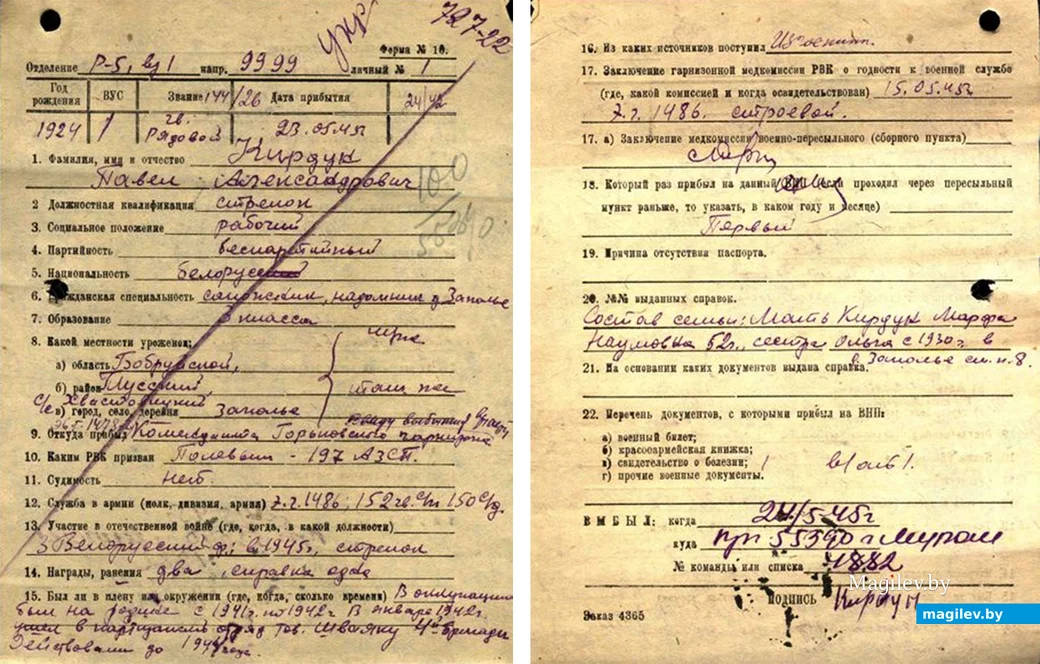 укр
727-22
Форма № 10.
Отделение Р-5, вз1 напр. 9999 личный № 1
Год рождения ВУС Звание 144/26 Дата прибытия 24/42
1924 1 гв. Рядовой 23.05.45г
1. Фамилия, имя и отчество Кирдук
Павел Александрович
2 Должностная квалификация стрелок
3. Социальное положение рабочий
4. Партийность беспартийный
5. Национальность белорус
6. Гражданская специальность сапожник, надомник д Заполье
7. Образование 3 класса
8. Какой местности уроженец:
а) область Бобруйской,
б) район Глусский, там же
с/с Хвастовицкий
в) город, село, деревня Заполье
9. Откуда прибыл Комендатура Горьковского гарнизона
10. Каким РВК призван Полевым - 197 АЗСП.
11. Судимость нет.
12. Служба в армии (полк, дивизия, армия) э.г. 1486; 152 гв. с/п 150 с/д.
13. Участие в отечественной войне (где, когда, в какой должности)
3 Белорусский фр; в 1945г. стрелок
14. Награды, ранения два, справка одна
15. Был ли в плену или окружении (где, когда, сколько времени) В оккупации
был на родине с 1941г. по 1942г В январе 1942г.
ушел в партизанский отряд тов. Шваяку 4й бригады
Действовали до 1944 года.
16. Из каких источников поступил Из госпит.
17. Заключение гарнизонной медкомиссии РВК о годности к военной службе
(где, какой комиссией и когда освидетельствован) 15.05.45г
э.г. 1486. строевой.
17. а) Заключение медкомиссии военно-пересыльного (сборного пункта)
18. Который раз прибыл на данный ВПП (если проходил через пересыльный
пункт раньше, то указать, в каком году и месяце)
Первый
19. Причина отсутствия паспорта.
20. №№ выданных справок.
Состав семьи: Мать Кирдук Марфа
Наумовна 52г., сестра Ольга с 1930г. в
д. Заполье см. п. 8.
21. На основании каких документов выдана справка.
22. Перечень документов, с которыми прибыл на ВПП:
а) военный билет;
б) красноармейская книжка;
в) свидетельство о болезни;
г) прочие военные документы.
ВЫБЫЛ: когда 24/5-45г
куда 55390 г Муром
№ команды или списка 4882
Подпись Кирдук
Заказ 4365
Magilev.by
magilev.by